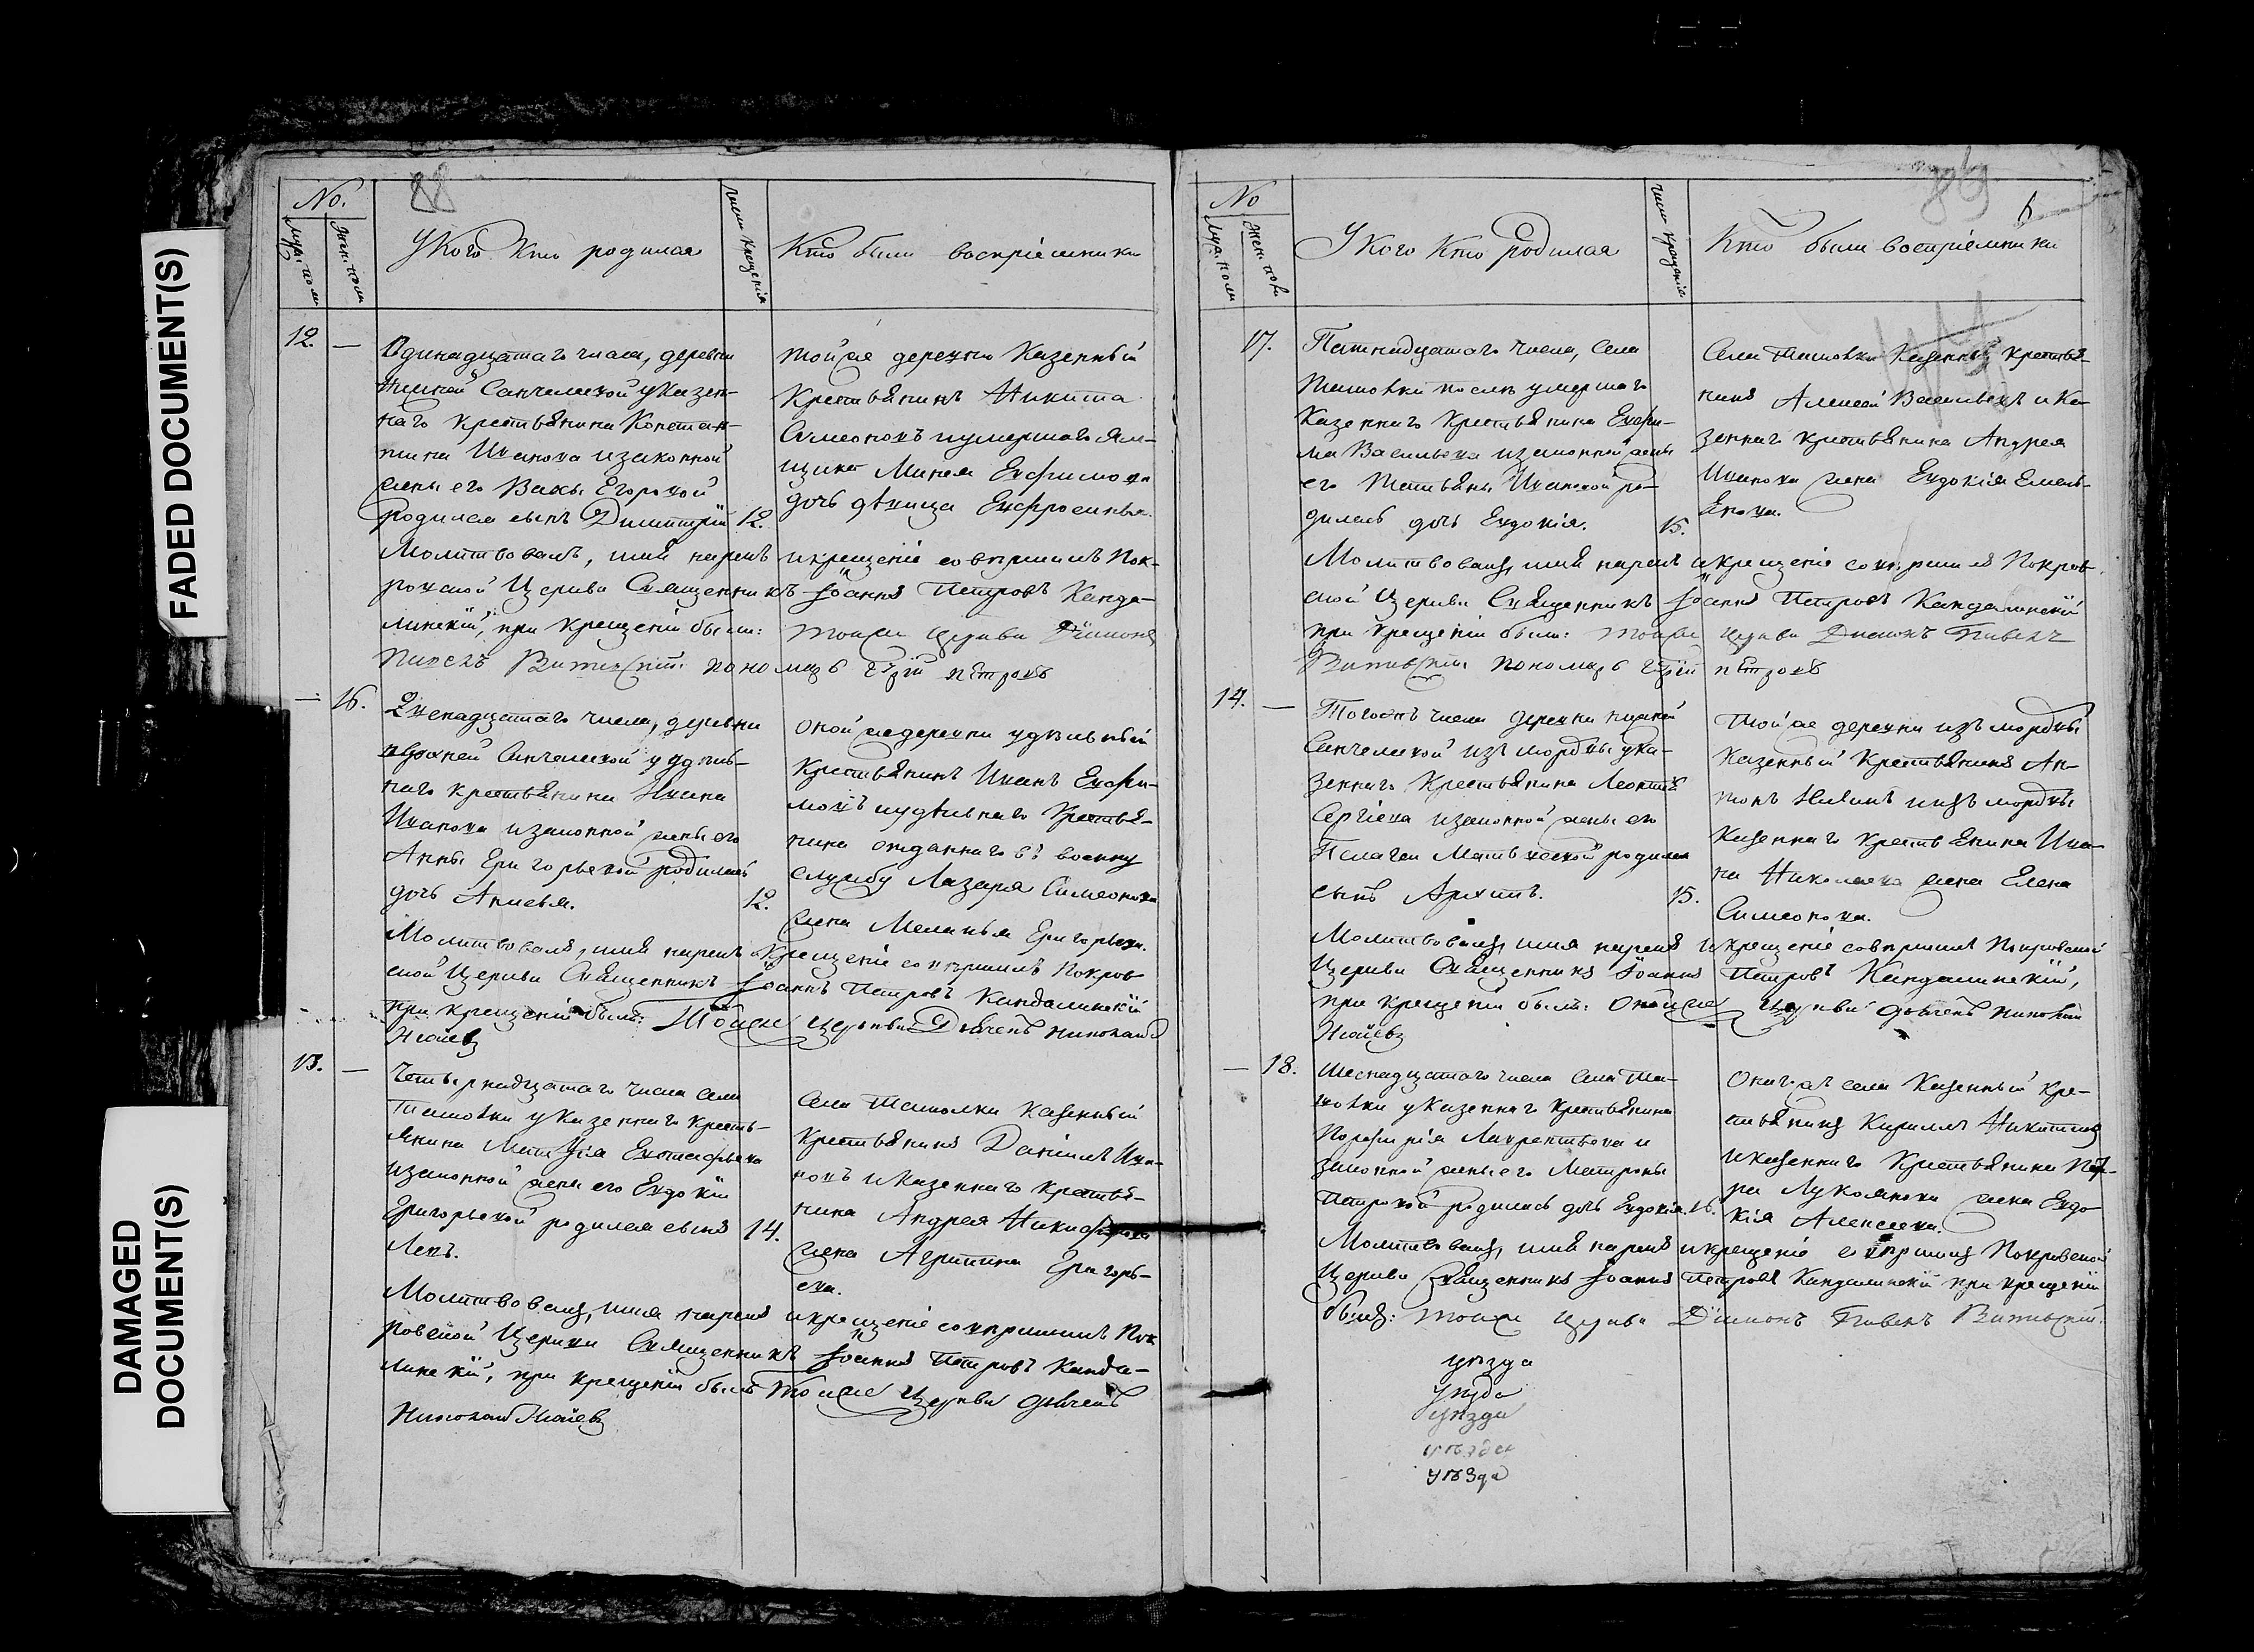 FADED DOCUMENT(S)
DAMAGED
DOCUMENT(S)
88
No.
Муж. пола
Жен. пола
У Кого Кто родился
Число Крещенія
Кто были воспріемники
12.
—
Одинадцатаго числа, деревни
Санчелеевой у казен-
наго крестьянина Констан-
тина Иванова изаконной
жены его Вассы Егоровой
родился сынъ Димитрій
12.
Тойже деревни Казенный
Крестьянинъ Никита
Симеоновъ иумершаго ям-
щика Минея Евфимова
дочь дѣвица Евфросинья.
Молитвовалъ, имя нарекъ икрещеніе совершилъ Пок-
ровской Церкви Священникъ Іоаннъ Петровъ Канда-
линскій, при крещеніи были: тойже церкви Діаконъ
Павелъ пономарь Петровъ
—
16.
Двенадцатаго числа, деревни
верхней Санчелеевой у удѣль-
наго крестьянина Ивана
Иванова изаконной жены его
Анны Григорьевой родилась
дочь Анисья.
12.
Оной жедеревни удѣльный
Крестьянинъ Иванъ Евфи-
мовъ иудѣльнаго Крестья-
нина отданнаго въ военну
службу Лазаря Симеонова
жена Меланья Григорьева.
Молитвовалъ, имя нарекъ и Крещеніе совершилъ Покров-
ской Церкви Священникъ Іоаннъ Петровъ Кандалинскій
при крещеніи былъ: Тойже церкви Дьячекъ Николай
13.
—
Четырнадцатаго числа села
Ташовки у Казеннаго кресть-
янина Матвѣя Евстафьева
изаконной жены его Евдокіи
Григорьевой родился сынъ
Левъ.
14.
Села Ташолки Казенный
Крестьянинъ Даніилъ Ива-
новъ иКазеннаго крестья-
нина Андрея Никифорова
жена Агрипина Григорь-
ева.
Молитвовалъ, имя нарекъ икрещеніе совершилъ Пок
ровской Церкви Священникъ Іоаннъ Петровъ Канда-
линскій, при крещеніи былъ тойже Церкви дьячекъ
Николай
89
6
No
Муж. пола
Жен. пола
У Кого Кто родился
Число крещенія
Кто были воспріемники
17.
Пятнадцатаго числа, села
Ташовки послѣ умершаго
Казеннаго Крестьянина Евфи-
ма Васильева изаконной жены
его Татьяны Ивановой ро-
дилась дочь Евдокія.
15.
Села Ташовки Казенный крестья-
нинъ Алексѣй Васильевъ и Ка-
зеннаго крестьянина Андрея
Иванова жена Евдокія Емель-
янова.
Молитвовалъ, имя нарекъ икрещеніе совершилъ Покров-
ской Церкви Священникъ Іоаннъ Петровъ Кандалинскій
при крещеніи были: тойже церкви Діаконъ Павелъ
пономарь Петровъ
14.
—
Тогожъ числа деревни нижней
Санчелеевой изъ мордвы у ка-
зеннаго Крестьянина Леонтья
Сергіева изаконной жены его
Пелагеи Матвѣевой родился
сынъ Архипъ.
15.
Тойже деревни изъ мордвы
Казенный Крестьянинъ Ан-
тонъ изъ мордвы
Казеннаго крестьянина Ива-
на Николаева жена Елена
Симеонова.
Молитвовалъ, имя нарекъ икрещеніе совершилъ Покровской
Церкви Священникъ Іоаннъ Петровъ Кандалинскій,
при крещеніи былъ: Онойже Церкви дьячекъ Николай
—
18.
Шеснадцатаго числа Села Та-
шовки у Казеннаго Крестьянина
Порфирія Лаврентьева и
законной жены его Матроны
Петровой родилась дочь Евдокія.
16.
Онагожъ села Казенный Кре-
стьянинъ Кириллъ Никитинъ
иказеннаго Крестьянина Пет-
ра Лукоянова жена Евдо-
кія Алексеева.
Молитвовалъ, имя нарекъ икрещеніе совершилъ Покровской
Церкви Священникъ Іоаннъ Петровъ Кандалинскій при крещеніи
былъ: тойже церкви Діаконъ Павелъ
уѣзда
уѣзда
уѣзда
уѣзда
уѣзда